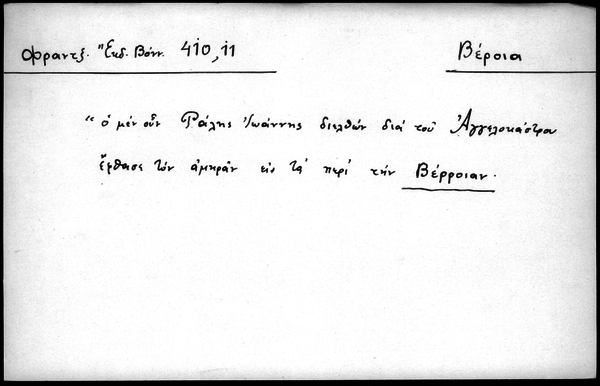 Φραντζ. Ἔκδ. Βόνν. 410, 11
Βέροια
“ ὁ μέν οὖν Ράλης Ἰωάννης διελθών διά τοῦ Ἀγγελοκάστρου
ἔφθασε τόν ἀμηρᾶν εἰς τά περί τήν Βέρροιαν.